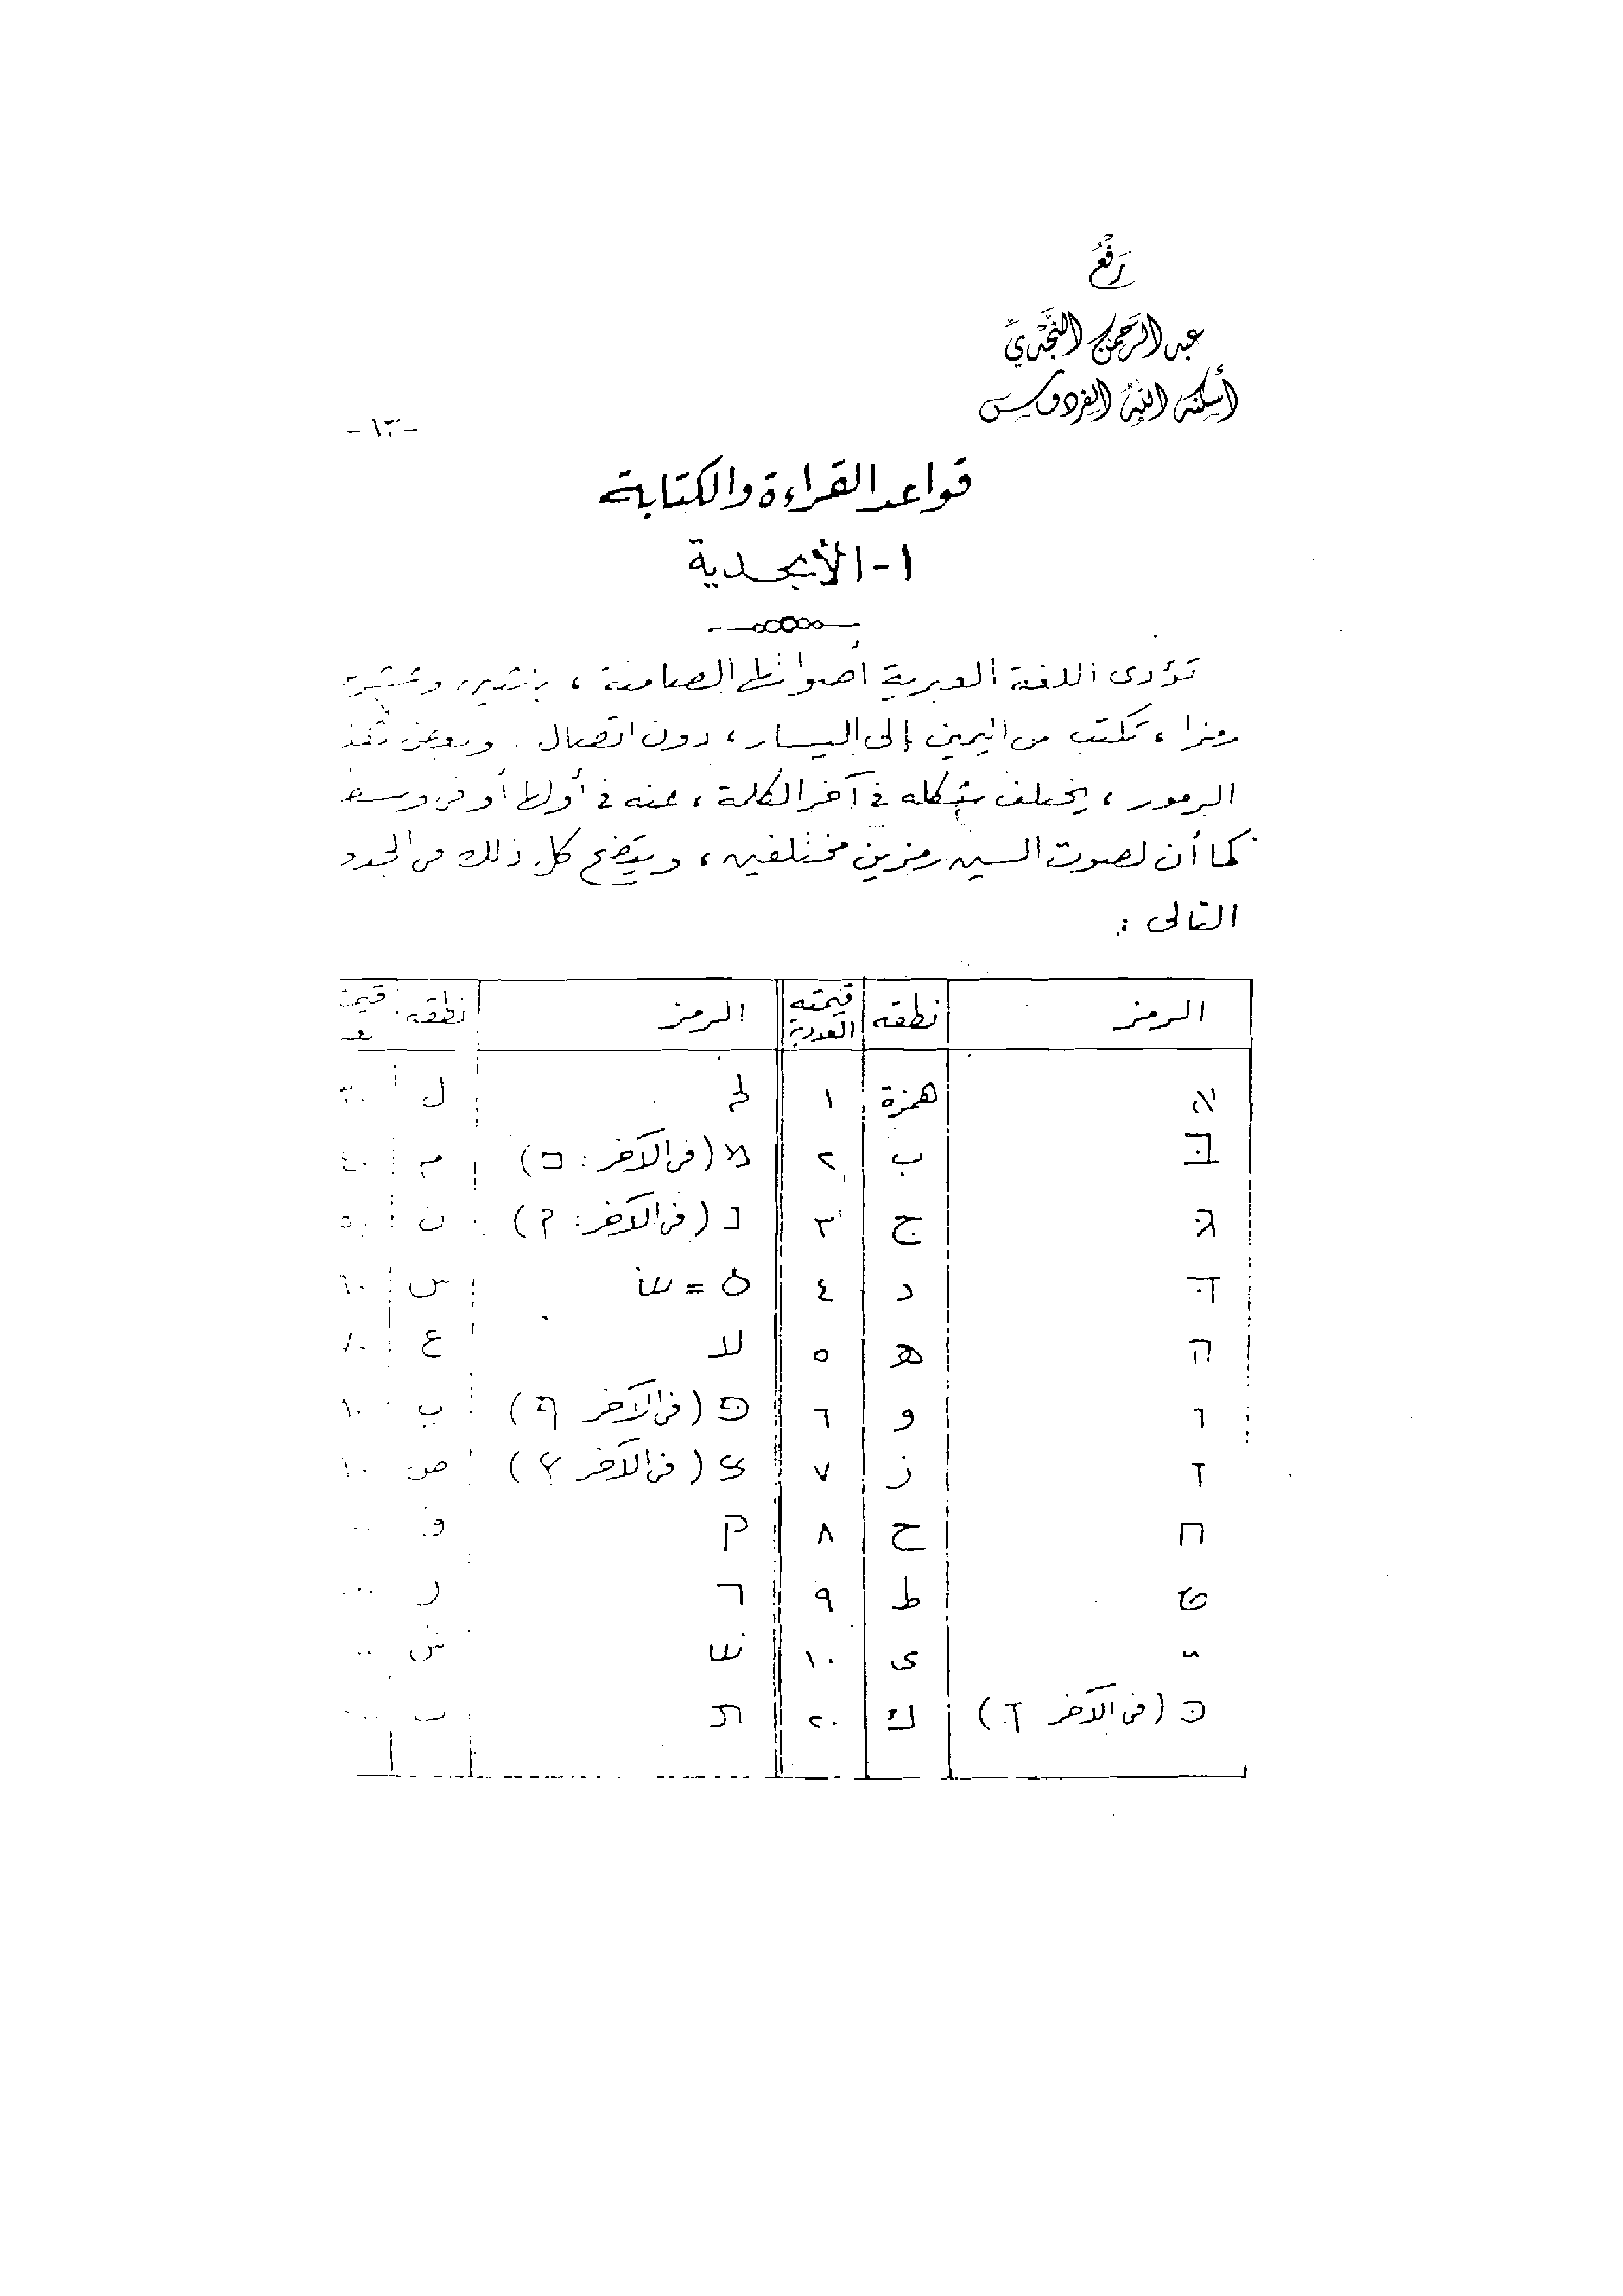 رَفْعُ
عبد الرحمن النجدي
أسكنه الله الفردوس
- ١٣ -
قواعد القراءة والكتابة
١ - الأبجدية
تؤدى اللغة العبرية أصواتها الصامتة ، باثنين وعشرين
رمزا ، تكتب من اليمين إلى اليسار ، دون اتصال . وبعض هذه
الرموز ، يختلف شكله فى آخر الكلمة ، عنه فى أولها أو فى وسط
كما أن لصوت السين رمزين مختلفين ، ويتضح كل ذلك من الجدو
التالى :
الرمز نطقه قيمته العددية الرمز نطقه قيمت
א همزة ١ ל ل ٣٠
בּ ب ٢ מ (فى الآخر : ם) م ٤٠
גּ ج ٣ נ (فى الآخر : ן) ن ٥٠
דּ د ٤ ס = שׂ س ٦٠
ה ه ٥ ע ع
ו و ٦ פּ (فى الآخر ף) پ
ז ز ٧ צ (فى الآخر ץ) ص
ח ح ٨ ק ق
ט ط ٩ ר ر
י ى ١٠ שׁ ش
כּ (فى الآخر ךּ) ك ٢٠ ת ت